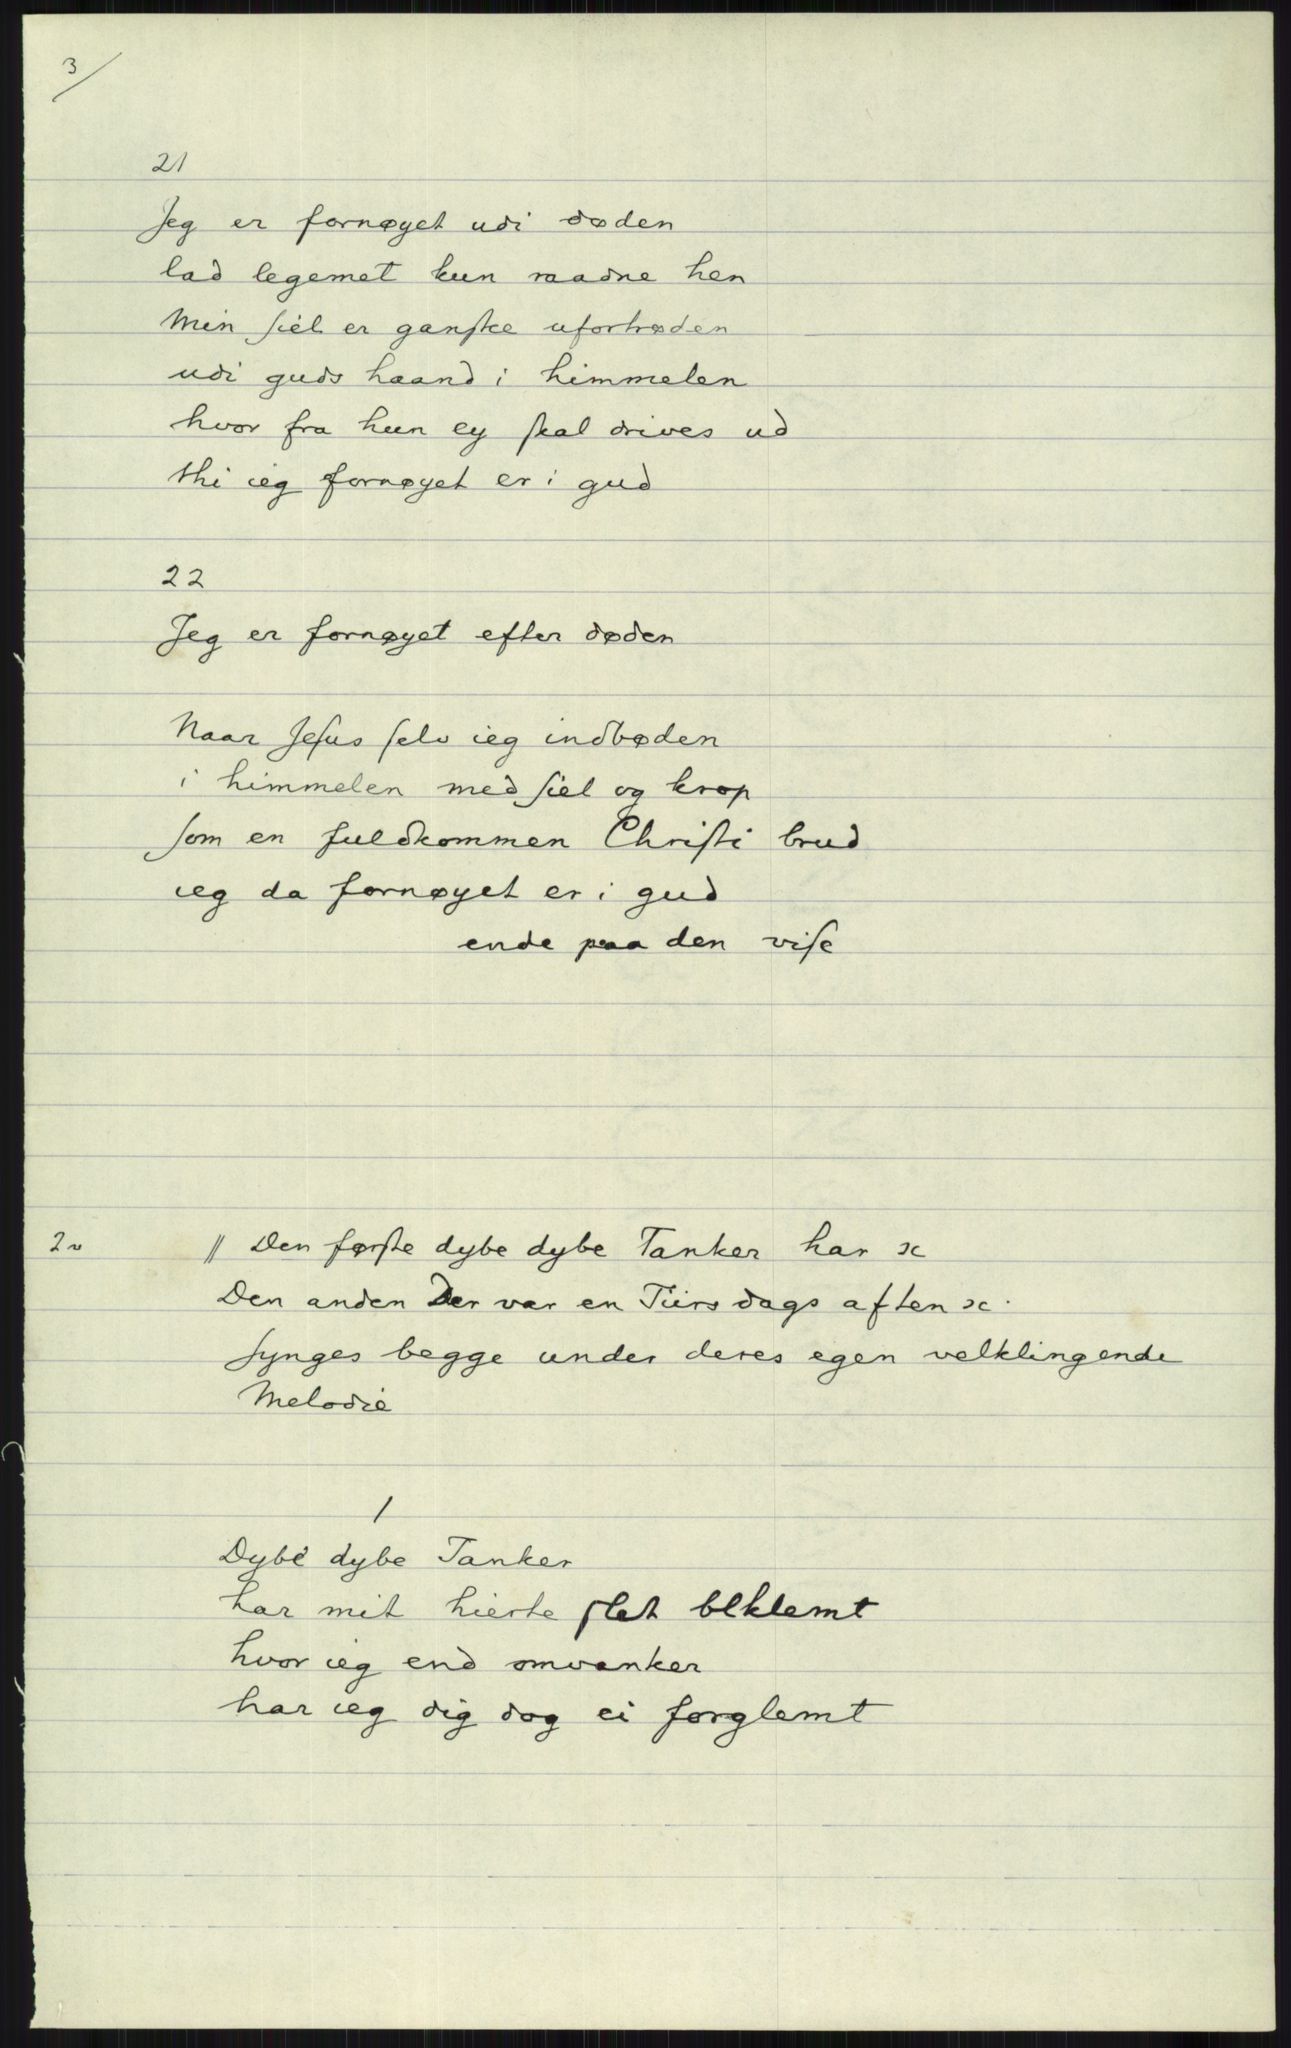 3/
21
Jeg er fornøyet udi døden
lad legemet kun raadne hen
Min siel er ganske ufortrøden
udi guds haand i himmelen
hvor fra hun ey skal drives ud
thi ieg fornøyet er i gud
22
Jeg er fornøyet efter døden
Naar Jesus selv ieg indbøden
i himmelen med siel og krop
som en fuldkommen Christi brud
ieg da fornøyet er i gud
ende paa den vise
2v // Den første dybe dybe Tanker har x
Den anden Der var en Tiirsdags aften x.
synges begge under deres egen velklingende
Melodie
1
Dybe dybe Tanker
har mit hierte slet beklemt
hvor ieg end omvanker
har ieg dig dog ei forglemt